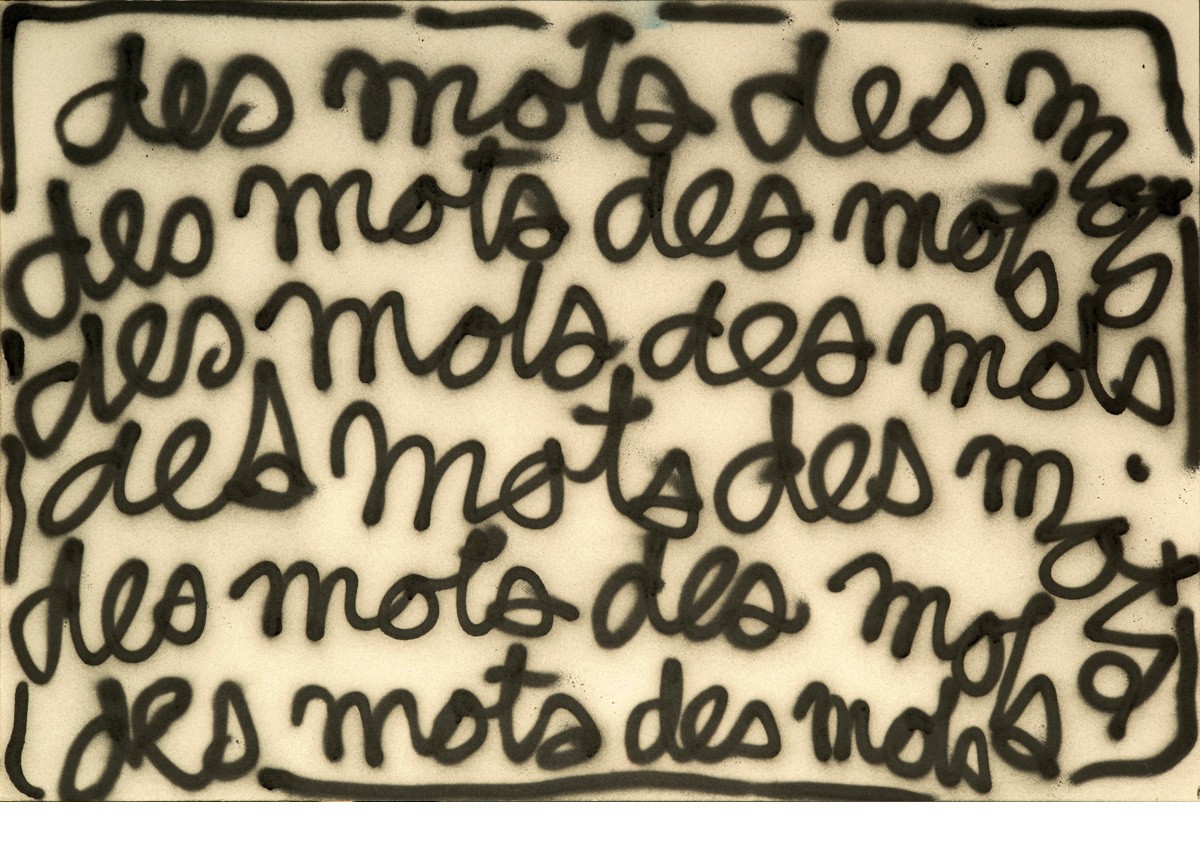 des mots des mots
des mots des mots
des mots des mots
des mots des mots
des mots des mots
des mots des mots